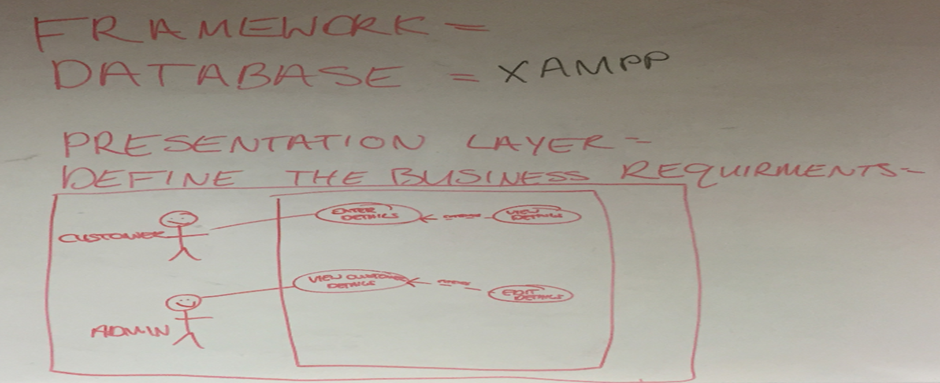 FRAMEWORK =
DATABASE = XAMPP
PRESENTATION LAYER =
DEFINE THE BUSINESS REQUIRMENTS-
CUSTOMER
ENTER
DETAILS
VIEW
DETAILS
VIEW CUSTOMER
DETAILS
EDIT
DETAILS
ADMIN